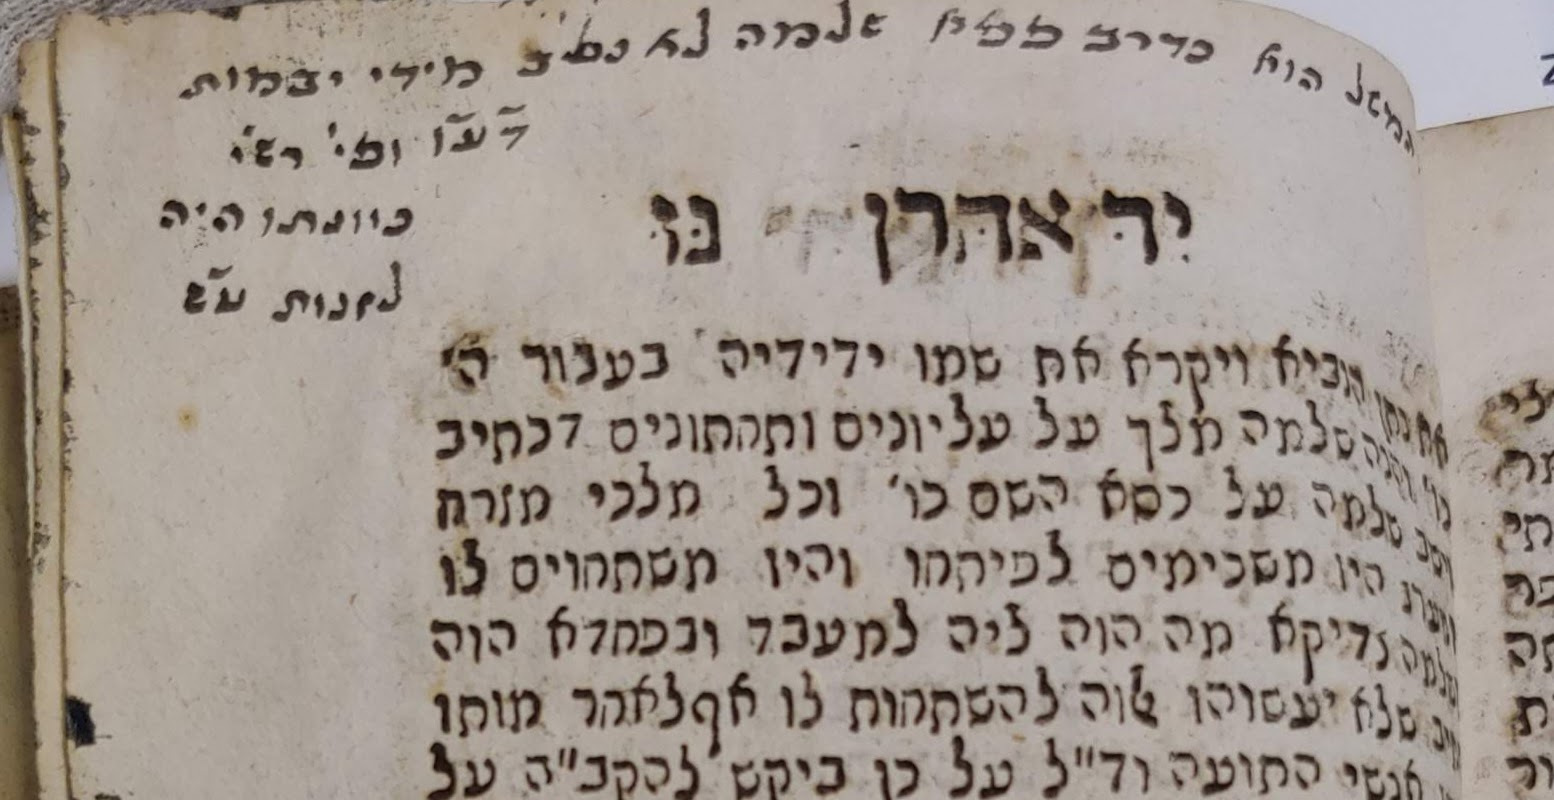 הוא כדרב שלמה לא מידי יבמות
ד׳ ע״ו וכ׳ רש״י
כוונתו היה
לקנות ע״ש
יד אהרן נז
הנביא ויקרא את שמו ידידיה בעבור ה׳
שלמה מלך על עליונים ותחתונים דכתיב
וישב שלמה על כסא השם כו׳ וכל מלכי מזרח
היו משכימים לפיתחו והיו משתחוים לו
שלמה צדיקא מה הוה ליה למעבד ובפחדא הוה
שלא יעשוהו אלוה להשתחות לו אף לאחר מותו
אנשי התועה וד״ל על כן ביקש להקב״ה על